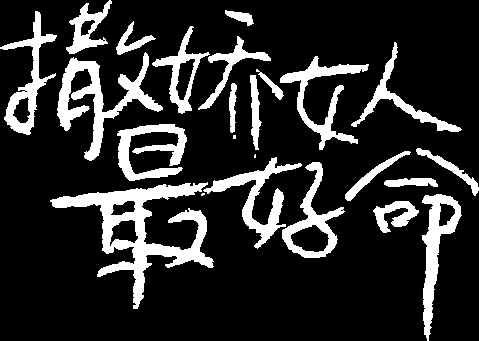 撒娇女人
最好命